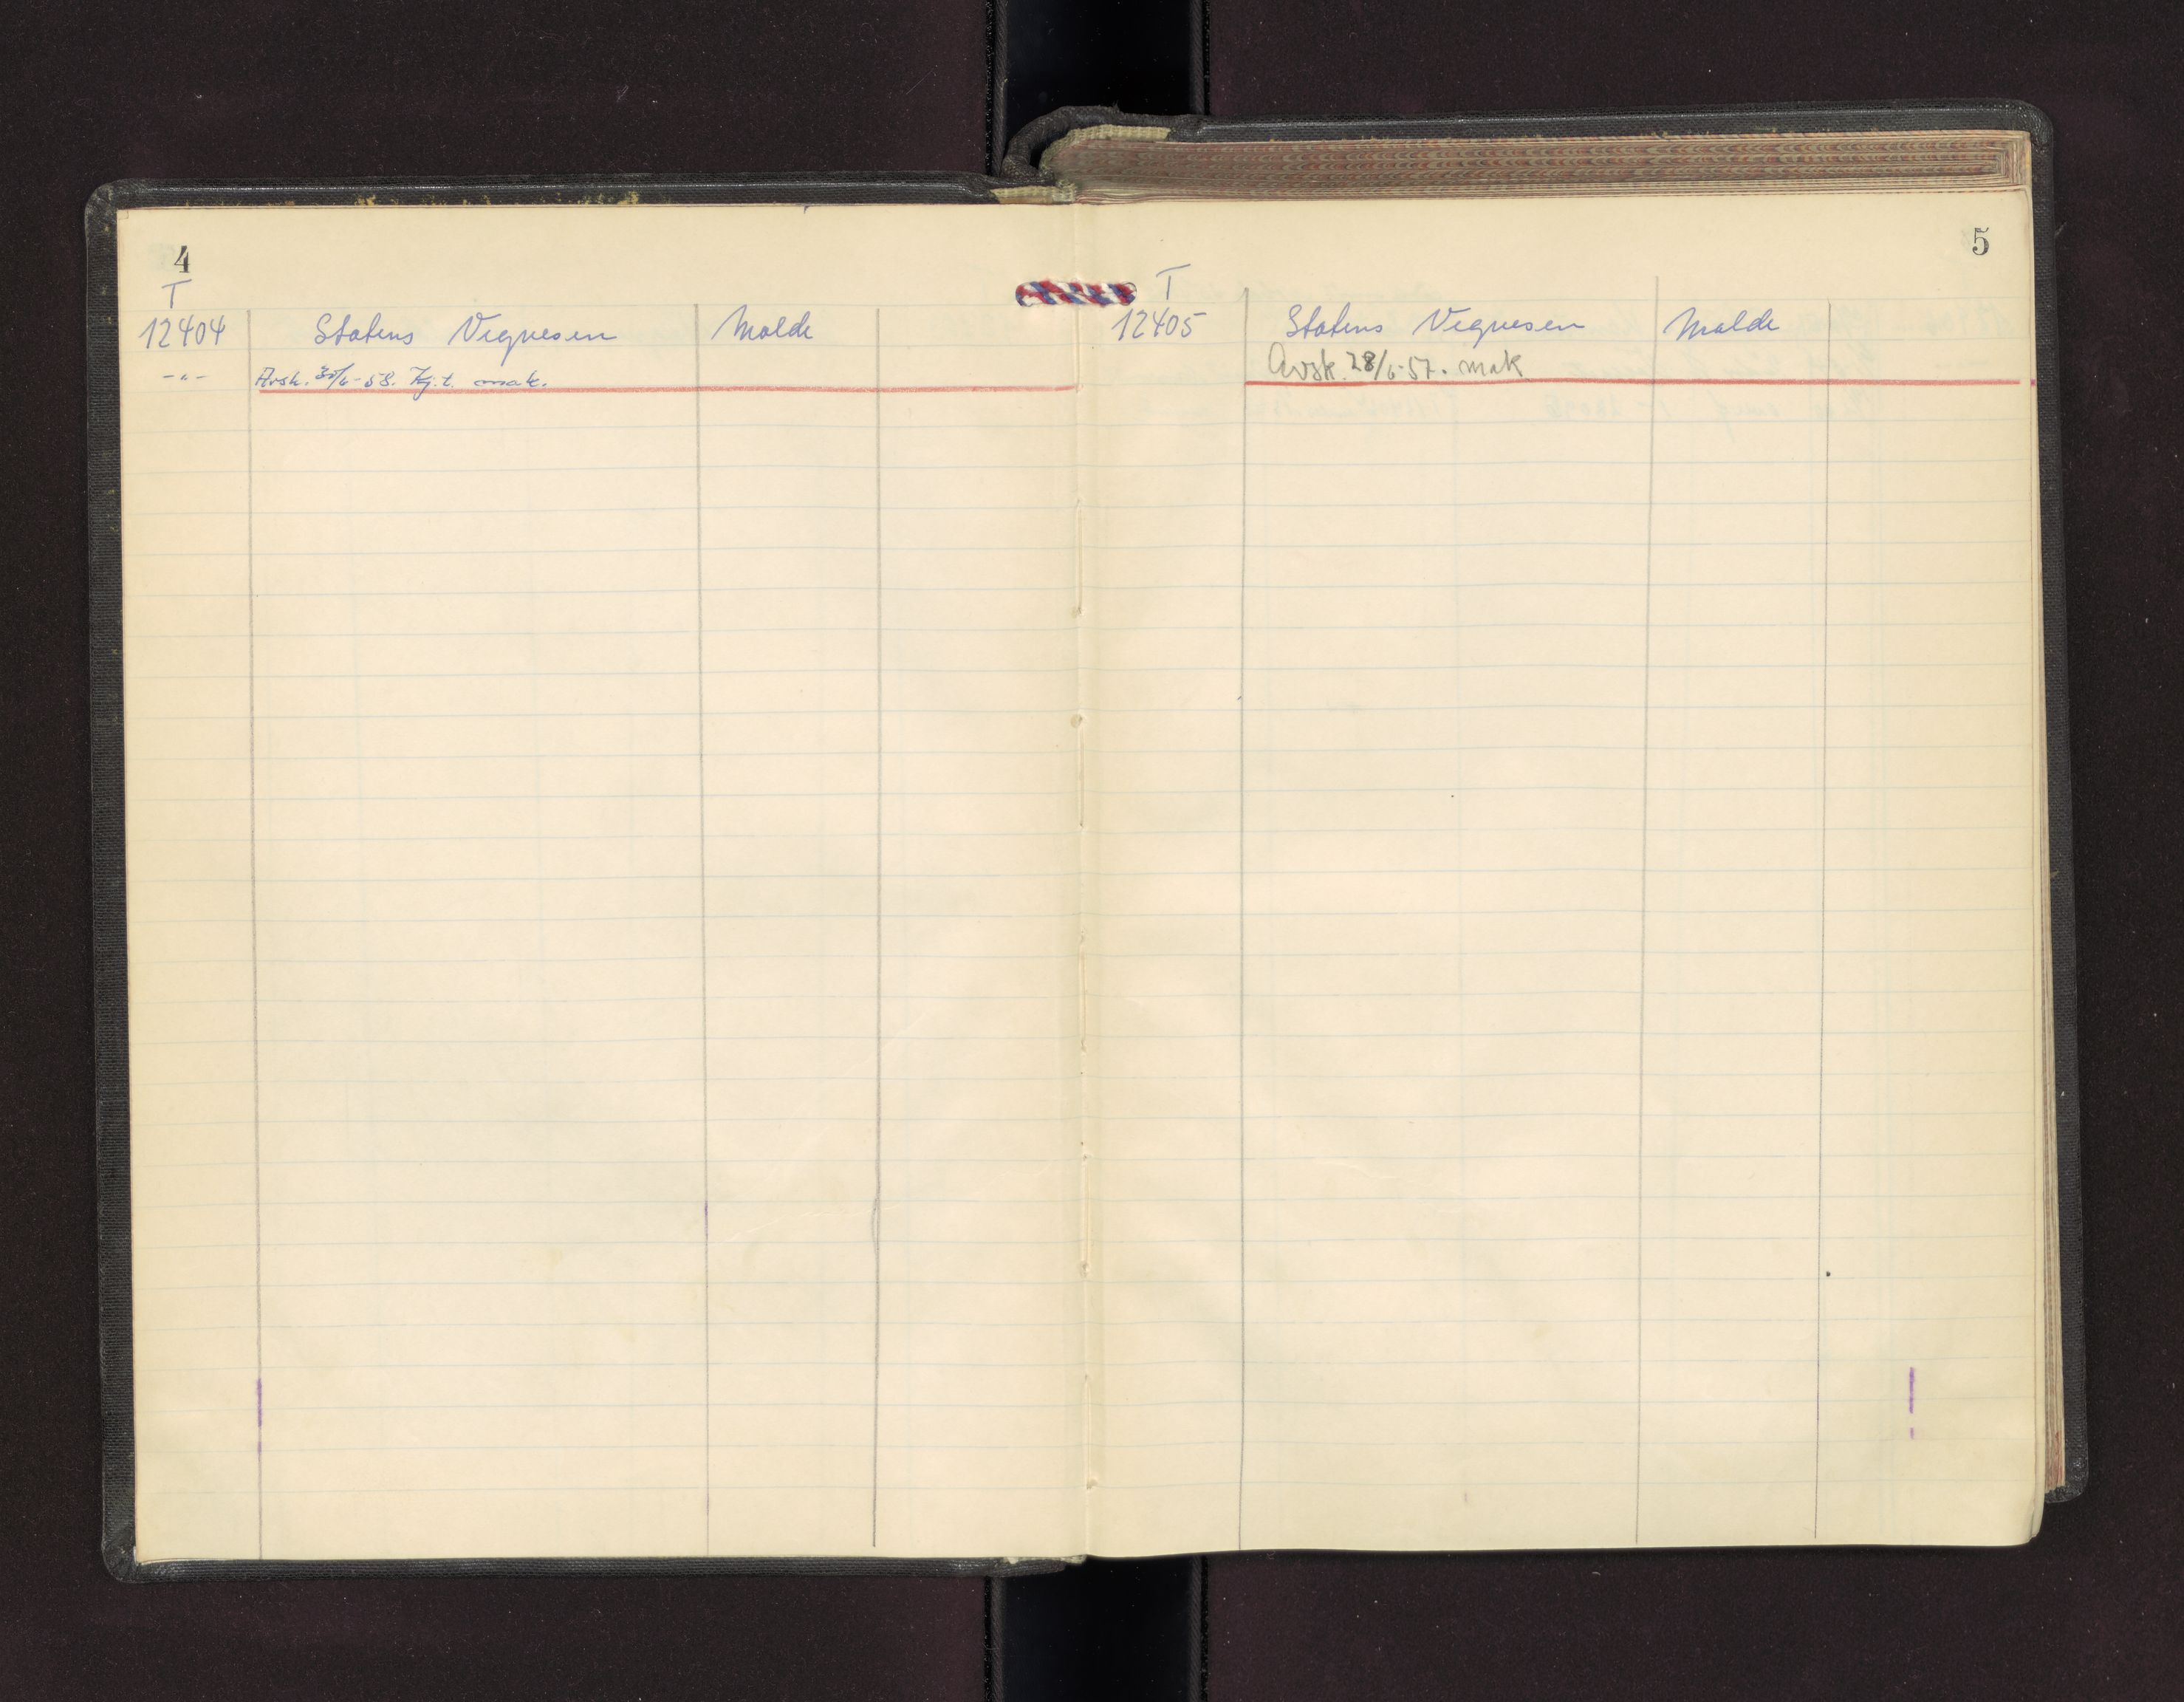 4
T
12404 Statens Vegvesen Molde
-"- Avsk. 30/6-58. Kj.t. mak.
5
T
12405 Statens Vegvesen Molde
Avsk. 28/6-57. mak